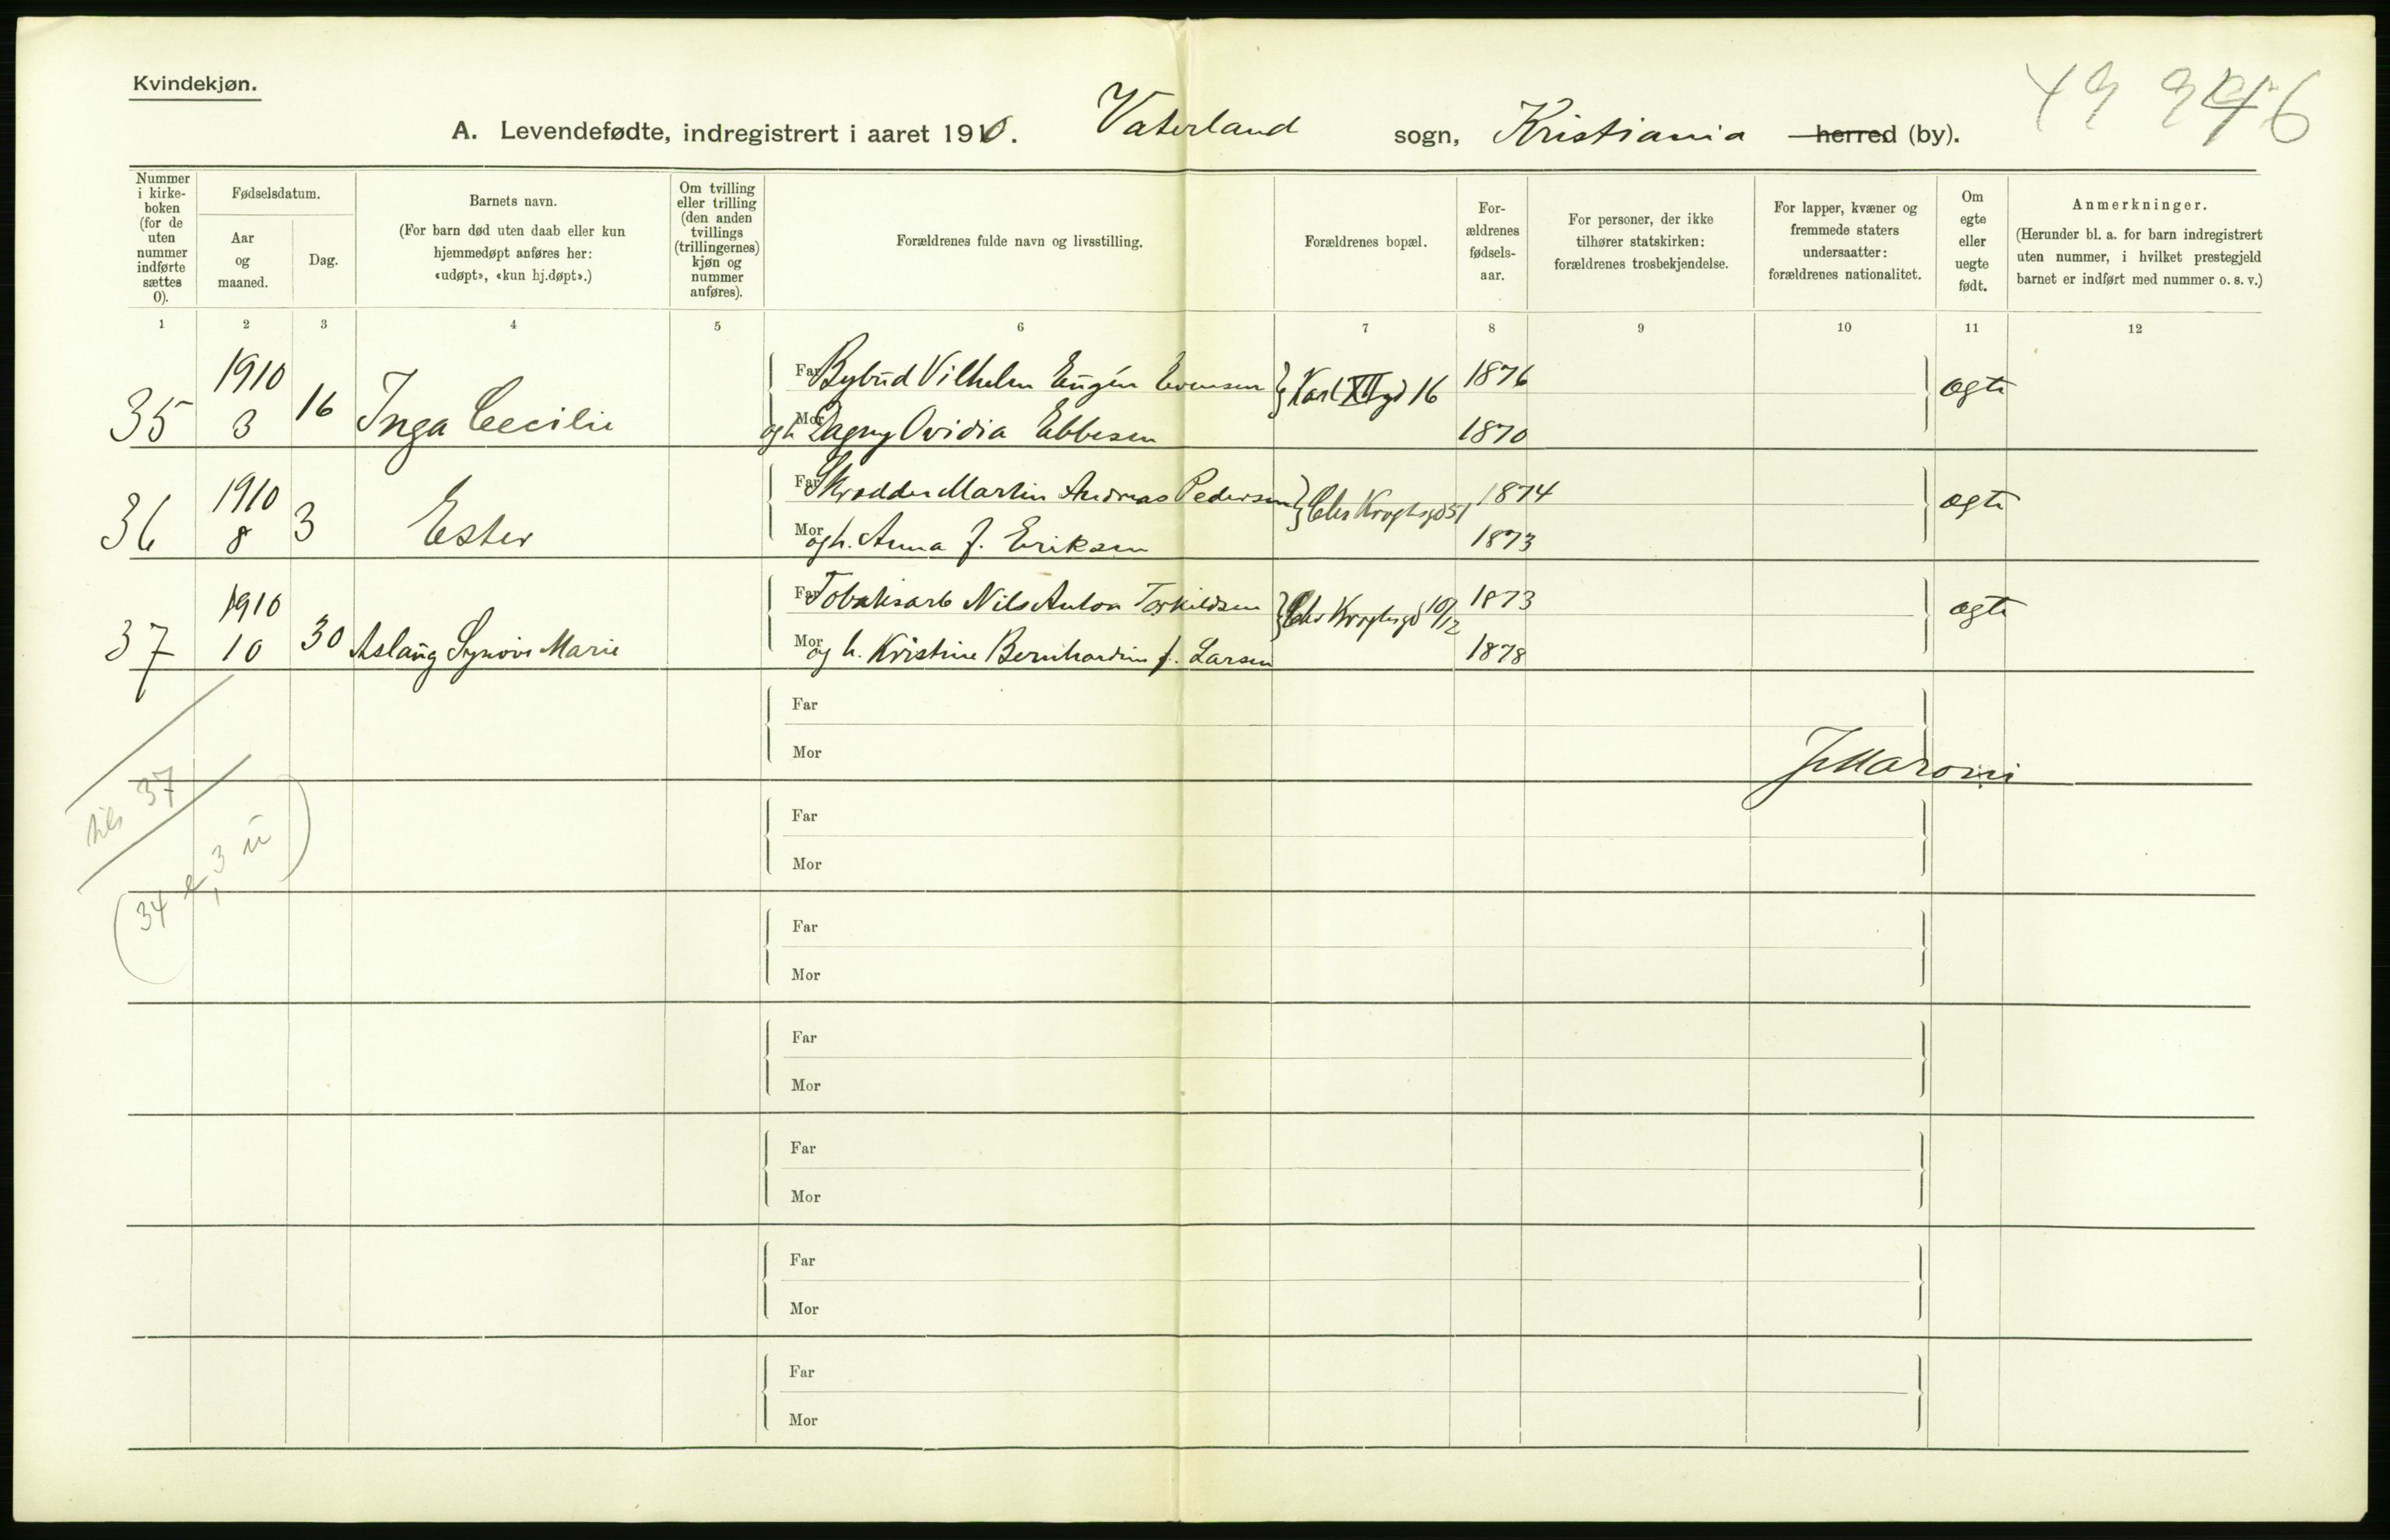 Kvindekjøn.
A. Levendefødte, indregistrert i aaret 1910. Vaterland sogn, Kristiania herred (by).
Nummer i kirke-boken (for de uten nummer indførte sættes 0).
Fødselsdatum.
Aar og maaned.
Dag.
Barnets navn.
(For barn død uten daab eller kun hjemmedøpt anføres her: «udøpt», «kun hj.døpt».)
Om tvilling eller trilling (den anden tvillings (trillingernes) kjøn og nummer anføres).
Forældrenes fulde navn og livsstilling.
Forældrenes bopæl.
For-ældrenes fødsels-aar.
For personer, der ikke tilhører statskirken: forældrenes trosbekjendelse.
For lapper, kvæner og fremmede staters undersaatter: forældrenes nationalitet.
Om egte eller uegte født.
Anmerkninger.
(Herunder bl. a. for barn indregistrert uten nummer, i hvilket prestegjeld barnet er indført med nummer o. s. v.)
1 2 3 4 5 6 7 8 9 10 11 12
35 1910 3 16 Inga Cecilie
Far Bybud Vilhelm Eugén Evensen Karl XII gd 16 1876 ægte
Mor og h. Dagny Ovidia Ebbesen 1870
36 1910 8 3 Ester
Far Skrædder Martin Andreas Pedersen Chr Kroghsgd 51 1874 ægte
Mor og h. Anna f. Eriksen 1873
37 1910 10 30 Aslaug Synøve Marie
Far Tobaksarb Nils Anton Torkildsen Chr Kroghsgd 10/12 1873 ægte
Mor og h. Kristine Bernhardine f. Larsen 1878
Far
Mor
tils 37
(34 e, 3 u)
Far
Mor
Far
Mor
Far
Mor
Far
Mor
Far
Mor
Far
Mor